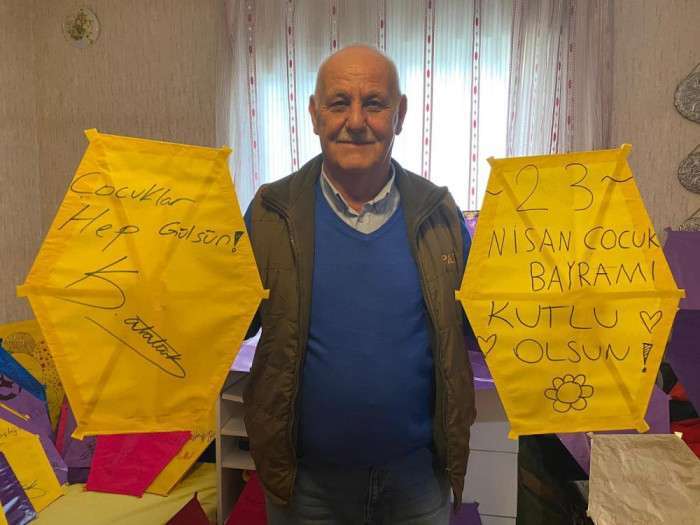 Çocuklar
Hep Gülsün!
K. Atatürk
~23~
NİSAN ÇOCUK
BAYRAMI
KUTLU
OLSUN!